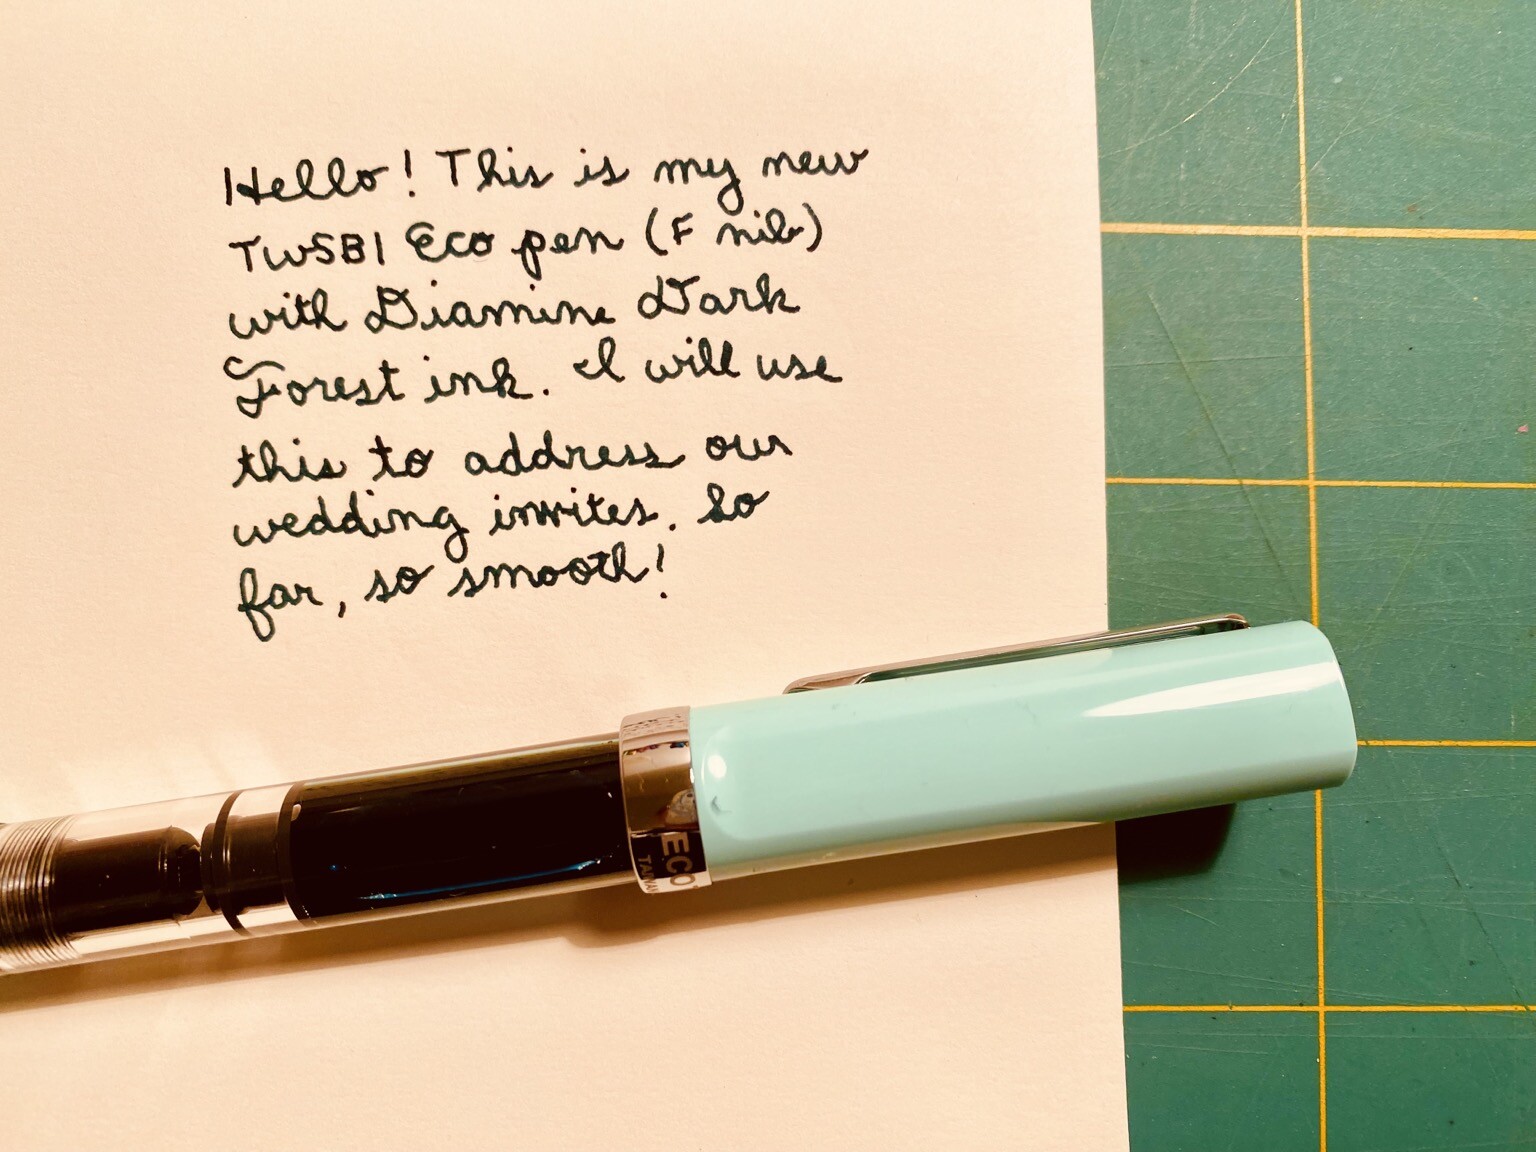 Hello! This is my new
TWSBI Eco pen (F nib)
with Diamine Dark
Forest ink. I will use
this to address our
wedding invites. So
far, so smooth!
ECO
TAIWAN